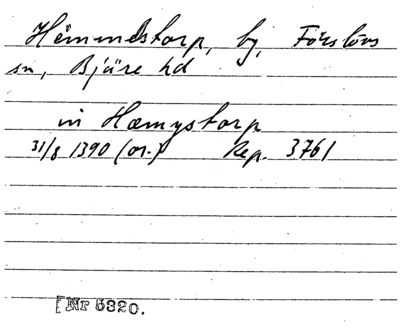 Hemmestorp, by, Förslövs
sn, Bjäre hd
in Hæmystorp
31/8 1390 (or.) Rep. 3761
[Nr 5320.